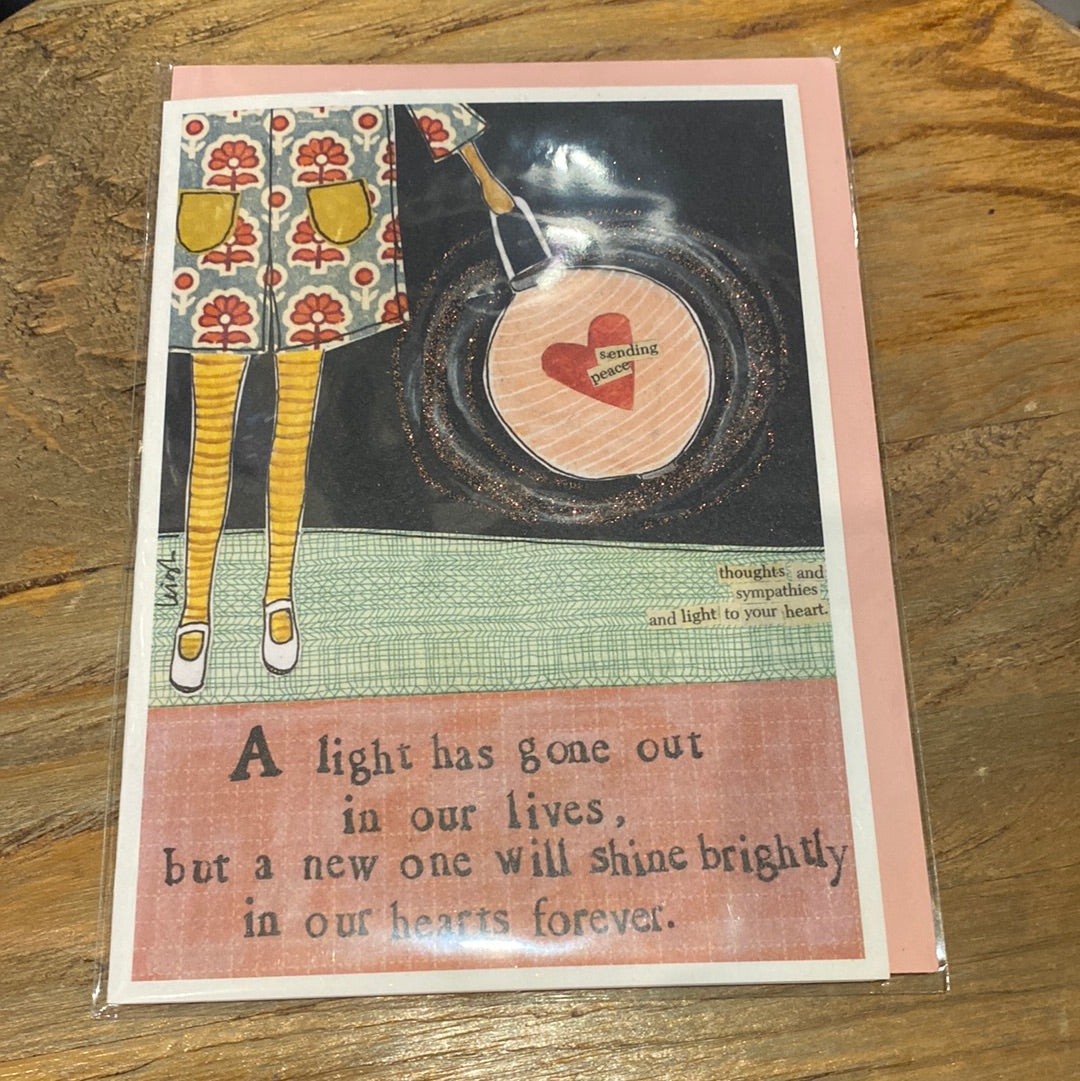 sending
peace
thoughts and
sympathies
and light to your heart.
A light has gone out
in our lives,
but a new one will shine brightly
in our hearts forever.